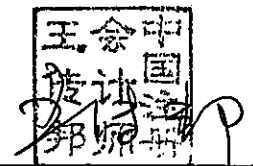 中国注册
会计师
王传邦